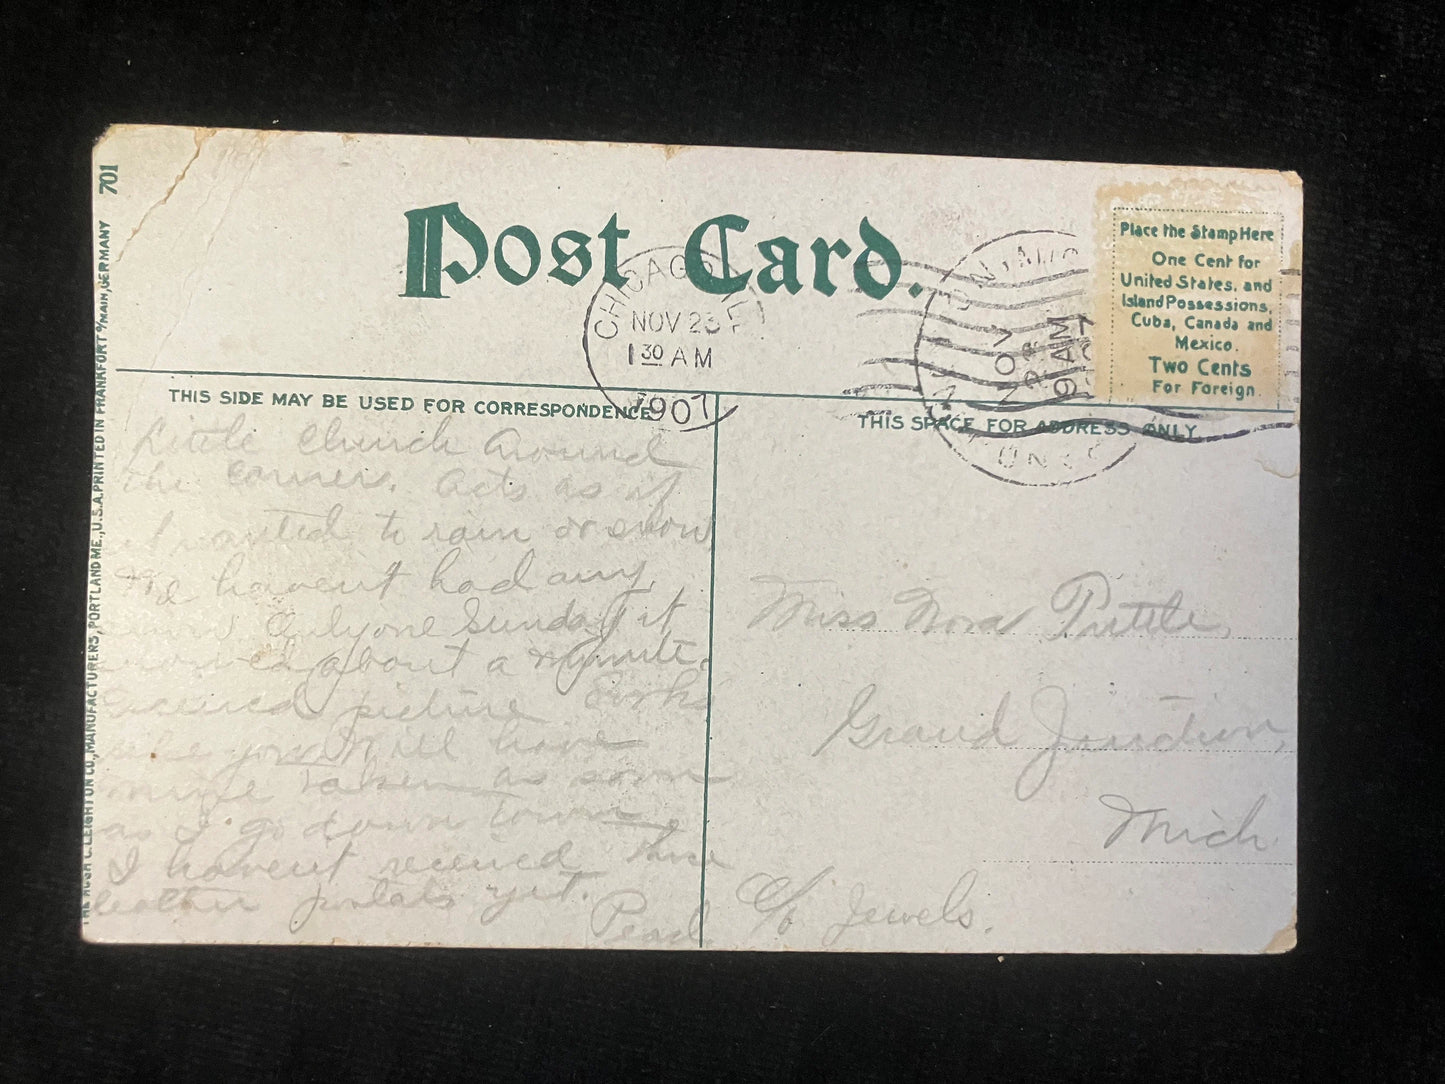 701
Post Card.
CHICAGO
NOV 23
1 30 AM
1907
NOV
9 AM
Place the Stamp Here
One Cent for
United States, and
Island Possessions,
Cuba, Canada and
Mexico.
Two Cents
For Foreign.
THIS SIDE MAY BE USED FOR CORRESPONDENCE
THIS SPACE FOR ADDRESS ONLY.
THE HUGH C. LEIGHTON CO., MANUFACTURERS, PORTLAND ME., U.S.A. PRINTED IN FRANKFORT o/MAIN, GERMANY
Little Church Around
the corner. Acts as if
it wanted to rain or snow,
We havent had any
Only one Sunday it
about a minute.
Received picture looks
like you Will have
mine taken as soon
as I go down town,
I havent received those
leather postals yet.
Pearl
Miss Nora Tuttle,
Grand Junction,
Mich.
C/o Jewels.